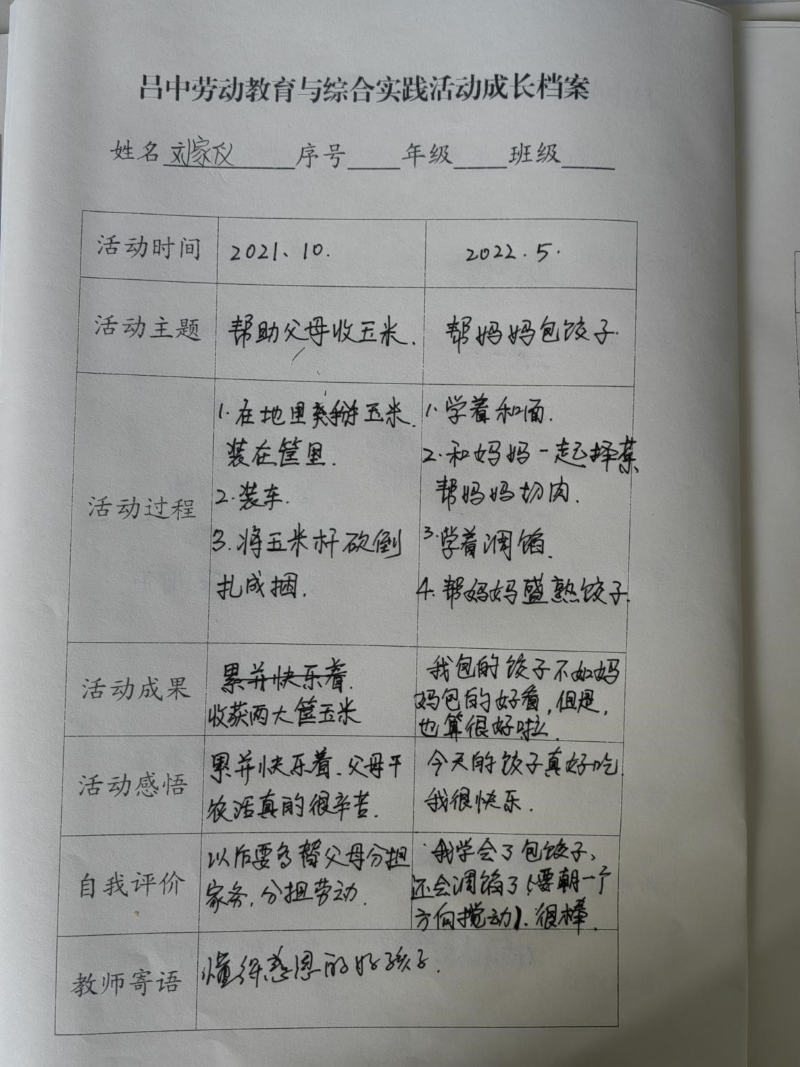 吕中劳动教育与综合实践活动成长档案
姓名 刘家仪 序号 年级 班级
活动时间 2021、10. 2022.5.
活动主题 帮助父母收玉米. 帮妈妈包饺子.
活动过程
1.在地里掰玉米.
装在筐里.
2.装车.
3.将玉米杆砍倒
扎成捆.
1.学着和面.
2.和妈妈一起择菜
帮妈妈切肉.
3.学着调馅.
4.帮妈妈盛熟饺子.
活动成果
累并快乐着.
收获两大筐玉米
我包的饺子不如妈
妈包的好看,但是,
也算很好啦.
活动感悟
累并快乐着.父母干
农活真的很辛苦.
今天的饺子真好吃.
我很快乐.
自我评价
以后要多替父母分担
家务,分担劳动.
我学会了包饺子、
还会调馅了(要朝一个
方向搅动).很棒.
教师寄语 懂得感恩的好孩子.